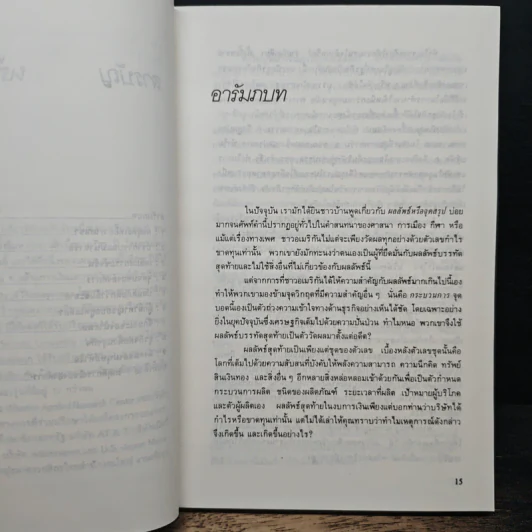 อารัมภบท
ในปัจจุบัน เรามักได้ยินชาวบ้านพูดเกี่ยวกับ ผลลัพธ์หรือจุดสรุป บ่อย
มากจนศัพท์คำนี้ปรากฏอยู่ทั่วไปในคำสนทนาของศาสนา การเมือง กีฬา หรือ
แม้แต่เรื่องทางเพศ ชาวอเมริกันไม่แต่จะเพียงวัดผลทุกอย่างด้วยตัวเลขกำไร
ขาดทุนเท่านั้น พวกเขายังมักทะนงว่าตนเองเป็นผู้ที่ยึดมั่นกับผลลัพธ์บรรทัด
สุดท้ายและไม่ใช้สิ่งอื่นที่ไม่เกี่ยวข้องกับผลลัพธ์นี้
แต่จากการที่ชาวอเมริกันได้ให้ความสำคัญกับผลลัพธ์มากเกินไปนี้เอง
ทำให้พวกเขามองข้ามจุดวิกฤตที่มีความสำคัญอื่น ๆ นั่นคือ กระบวนการ จุด
บอดนี้เองเป็นตัวถ่วงความเข้าใจทางด้านธุรกิจอย่างเห็นได้ชัด โดยเฉพาะอย่าง
ยิ่งในยุคปัจจุบันซึ่งเศรษฐกิจเต็มไปด้วยความปั่นป่วน ทำไมหนอ พวกเขาจึงใช้
ผลลัพธ์บรรทัดสุดท้ายเป็นตัววัดผลมาตั้งแต่อดีต?
ผลลัพธ์สุดท้ายเป็นเพียงแต่ชุดของตัวเลข เบื้องหลังตัวเลขชุดนั้นคือ
โลกที่เต็มไปด้วยความสับสนที่บังคับให้ความสามารถ ความนึกคิด ทรัพย์
สินเงินทอง และสิ่งอื่น ๆ อีกหลายสิ่งหล่อหลอมเข้าด้วยกันเพื่อเป็นตัวกำหนด
กระบวนการผลิต ชนิดของผลิตภัณฑ์ ระยะเวลาที่ผลิต เป้าหมายผู้บริโภค
และตัวผู้ผลิตเอง ผลลัพธ์สุดท้ายในงบการเงินเพียงแต่บอกท่านว่าบริษัทได้
กำไรหรือขาดทุนเท่านั้น แต่ไม่ได้เล่าให้คุณทราบว่าทำไมเหตุการณ์ดังกล่าว
จึงเกิดขึ้น และเกิดขึ้นอย่างไร?
15